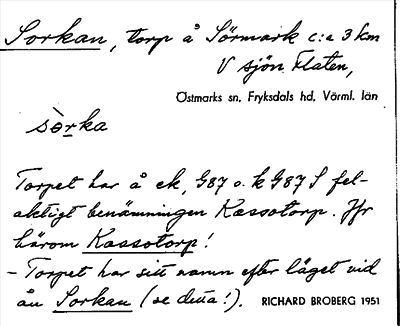 Sorkan, torp å Sörmark c:a 3 km
V sjön Flaten,
Östmarks sn, Fryksdals hd, Värml. län
sòrka
Torpet har å ek, G87 o. k G87 S fel-
aktigt benämningen Kassotorp. Jfr
härom Kassotorp!
– Torpet har sitt namn efter läget vid
ån Sorkan (se detta!). RICHARD BROBERG 1951